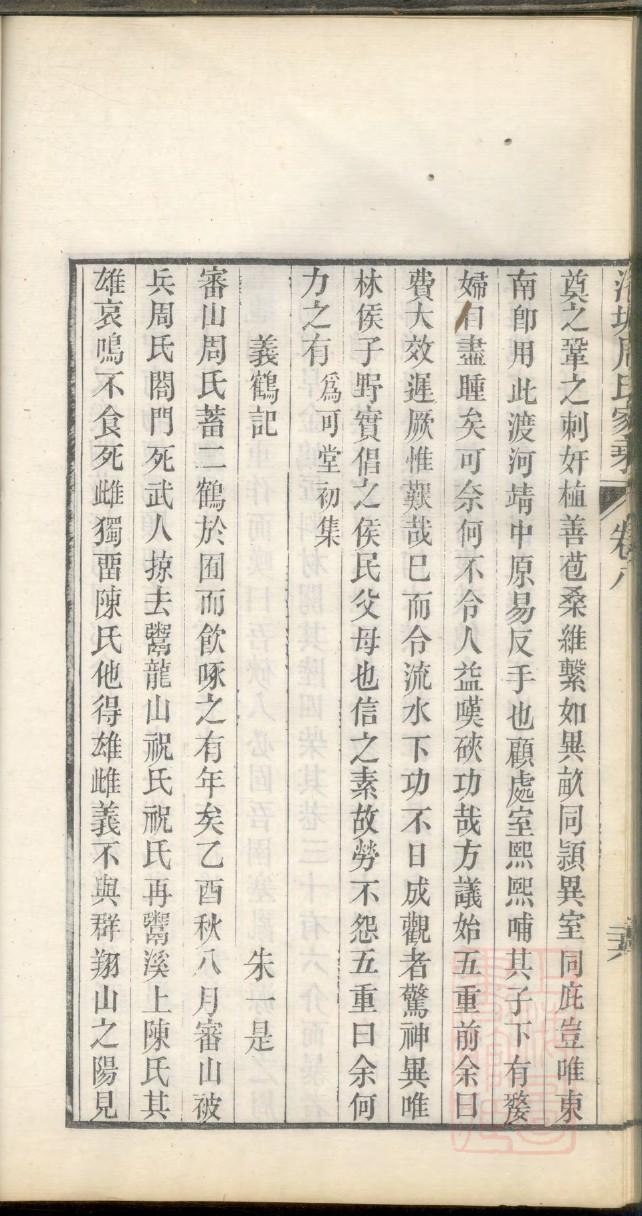 洛塘周氏家乘 卷八 二六
奠之鞏之刺奸植善苞桑維繫如異畝同穎異室同庇豈唯東
南卽用此渡河靖中原易反手也顧處室熙熙哺其子下有嫠
婦目盡腫矣可奈何不令人益嘆硤功哉方議始五重前余曰
費大效遲厥惟艱哉巳而令流水下功不日成觀者驚神異唯
林侯子野實倡之侯民父母也信之素故勞不怨五重曰余何
力之有 爲可堂初集
義鶴記 朱一是
審山周氏蓄二鶴於囿而飲啄之有年矣乙酉秋八月審山被
兵周氏閤門死武人掠去鬻龍山祝氏祝氏再鬻溪上陳氏其
雄哀鳴不食死雌獨畱陳氏他得雄雌義不與群翔山之陽見